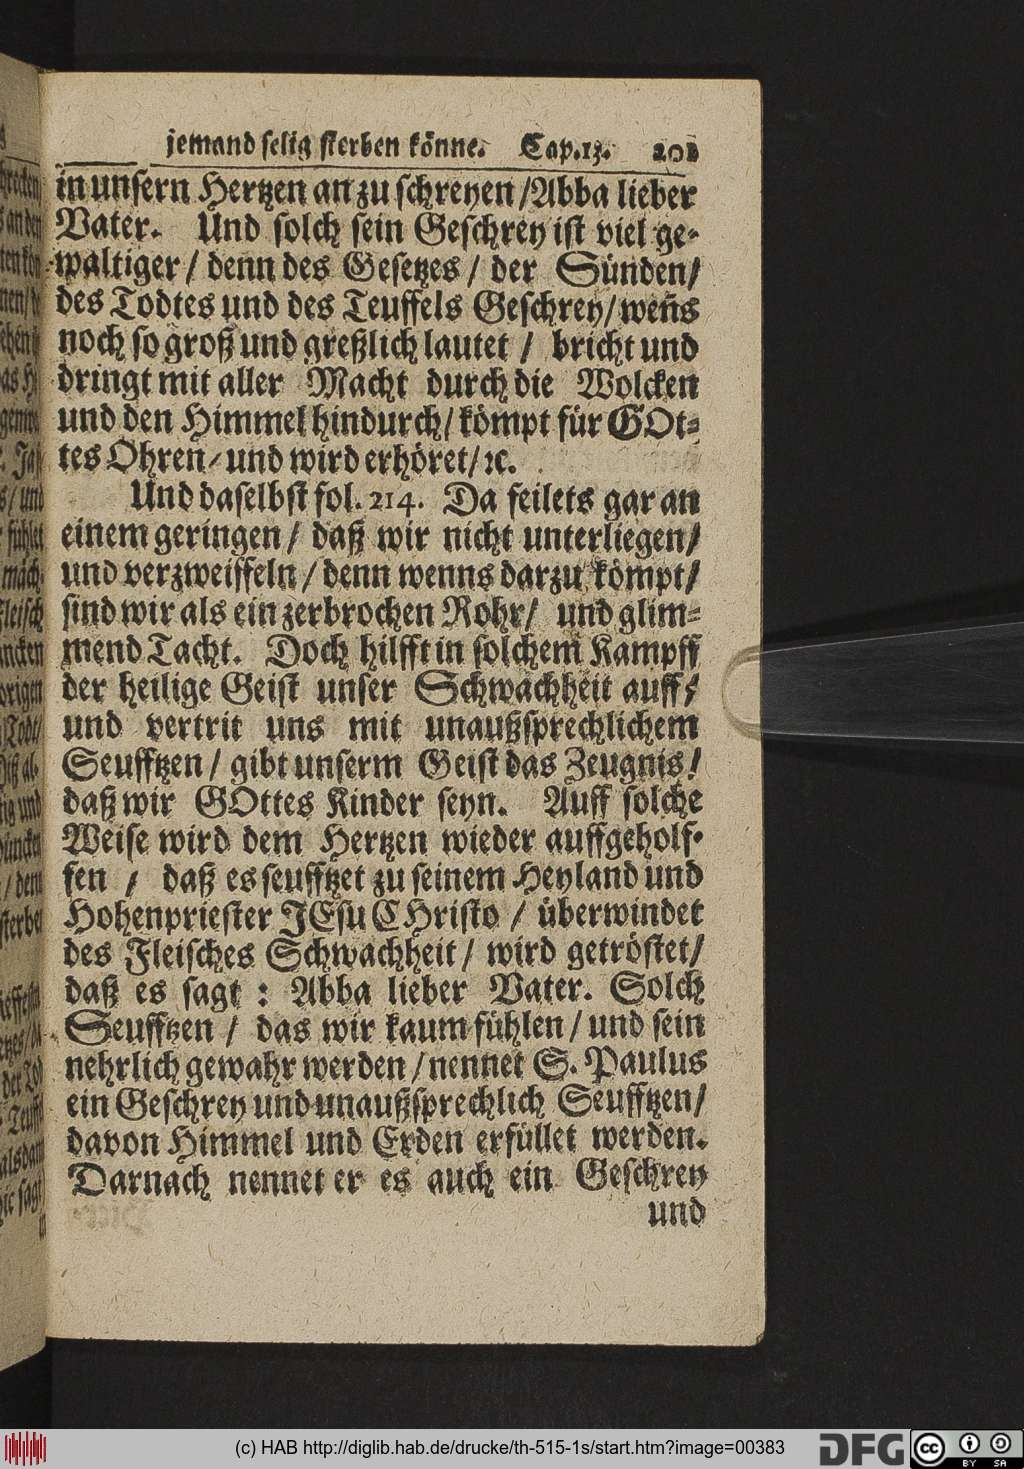 jemand selig sterben könne. Cap.13. 201
in unsern Hertzen an zu schreyen /Abba lieber
Vater. Und solch sein Geschrey ist viel ge-
waltiger / denn des Gesetzes / der Sünden/
des Todtes und des Teuffels Geschrey/ weñs
noch so groß und greßlich lautet / bricht und
dringt mit aller Macht durch die Wolcken
und den Himmel hindurch/ kömpt für GOt-
tes Ohren/ und wird erhöret/ ꝛc.
Und daselbst fol. 214. Da feilets gar an
einem geringen / daß wir nicht unterliegen/
und verzweiffeln / denn wenns darzu kömpt/
sind wir als ein zerbrochen Rohr/ und glim-
mend Tacht. Doch hilfft in solchem Kampff
der heilige Geist unser Schwachheit auff/
und vertrit uns mit unaußsprechlichem
Seufftzen / gibt unserm Geist das Zeugnis/
daß wir GOttes Kinder seyn. Auff solche
Weise wird dem Hertzen wieder auffgeholf-
fen / daß es seufftzet zu seinem Heyland und
Hohenpriester JEsu CHristo / überwindet
des Fleisches Schwachheit / wird getröstet/
daß es sagt : Abba lieber Vater. Solch
Seufftzen / das wir kaum fühlen / und sein
nehrlich gewahr werden / nennet S. Paulus
ein Geschrey und unaußsprechlich Seufftzen/
davon Himmel und Erden erfüllet werden.
Darnach nennet er es auch ein Geschrey
und
(c) HAB http://diglib.hab.de/drucke/th-515-1s/start.htm?image=00383
DFG
cc BY SA